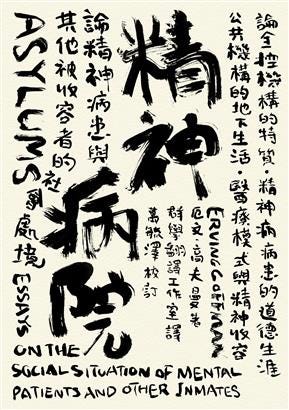 論全控機構的特質・精神病病患的道德生涯
公共機構的地下生活・醫療模式與精神收容
ERVING GOFFMAN
厄文・高夫曼著
群學翻譯工作室譯
萬毓澤校訂
精神
病院
論精神病患與
其他被收容者的社會處境
ASYLUMS ESSAYS
ON THE
SOCIAL SITUATION OF MENTAL
PATIENTS AND OTHER INMATES